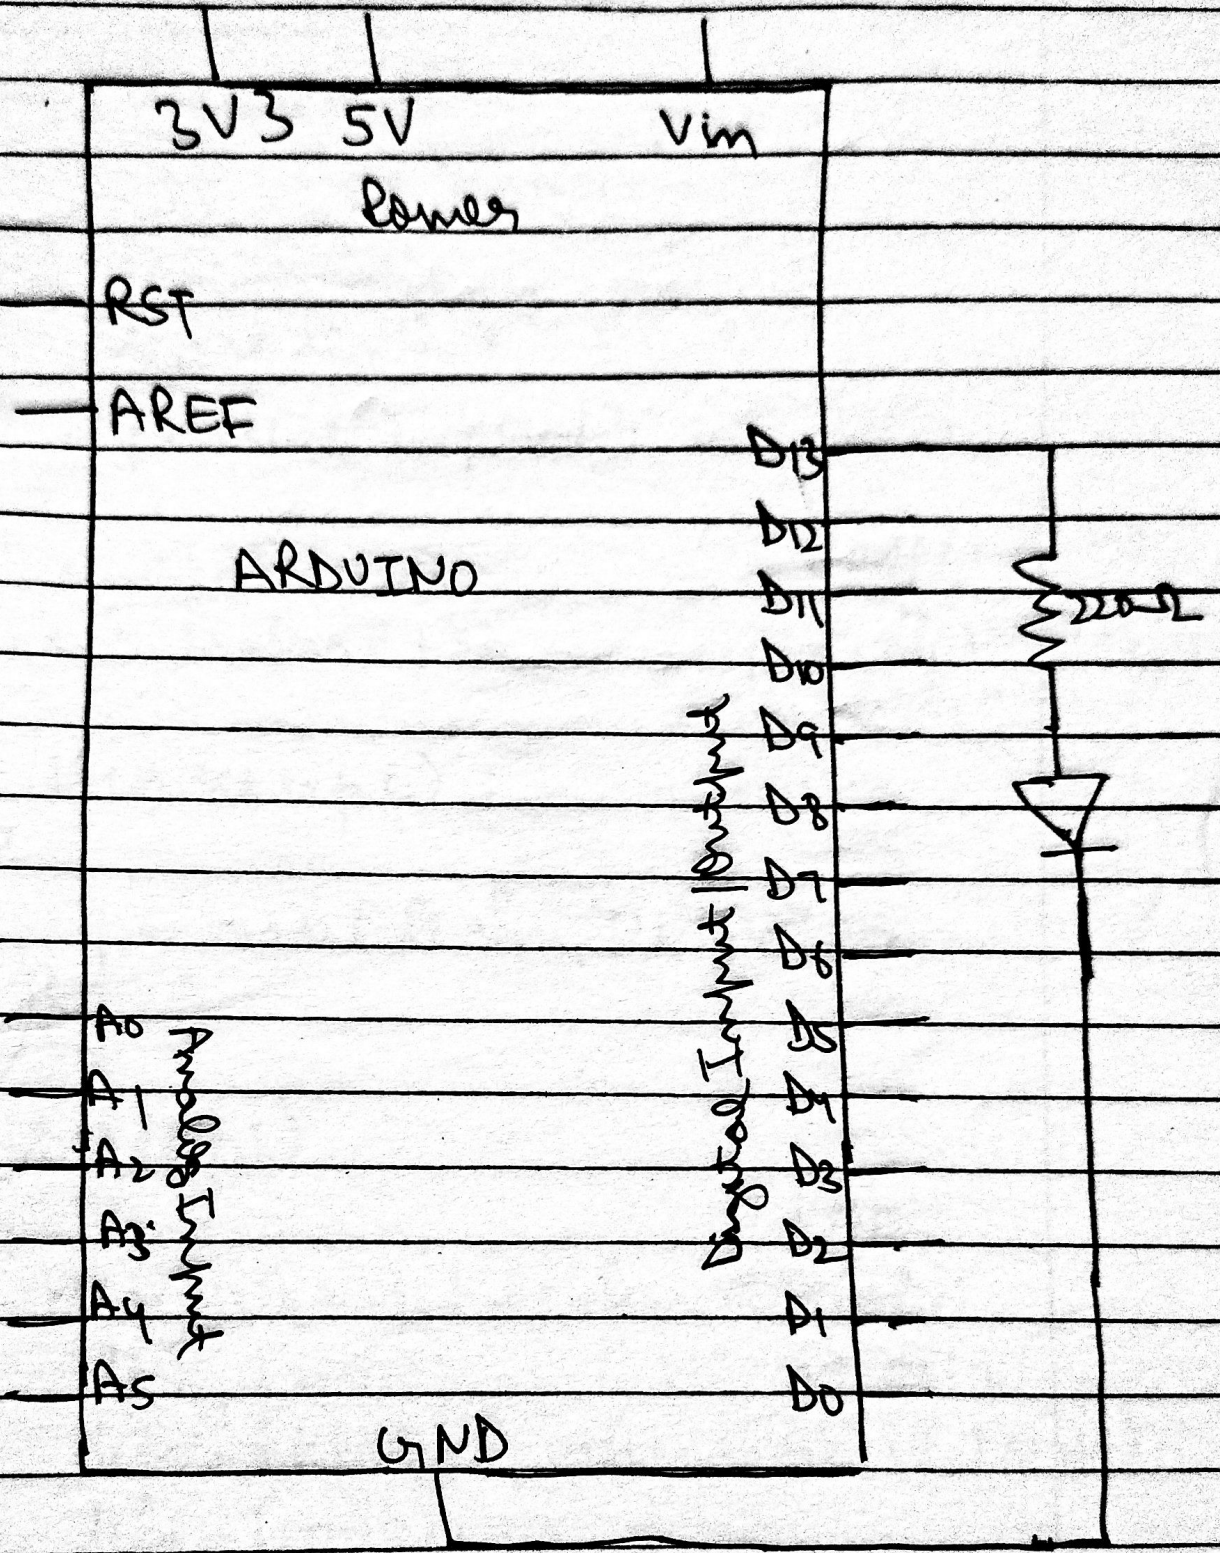 3V3 5V Vin
Power
RST
AREF
D13
D12
ARDUINO
D11
220Ω
D10
D9
D8
D7
D6
D5
D4
D3
D2
D1
D0
Digital Input/Output
A0
A1
A2
A3
A4
A5
Analog Input
GND